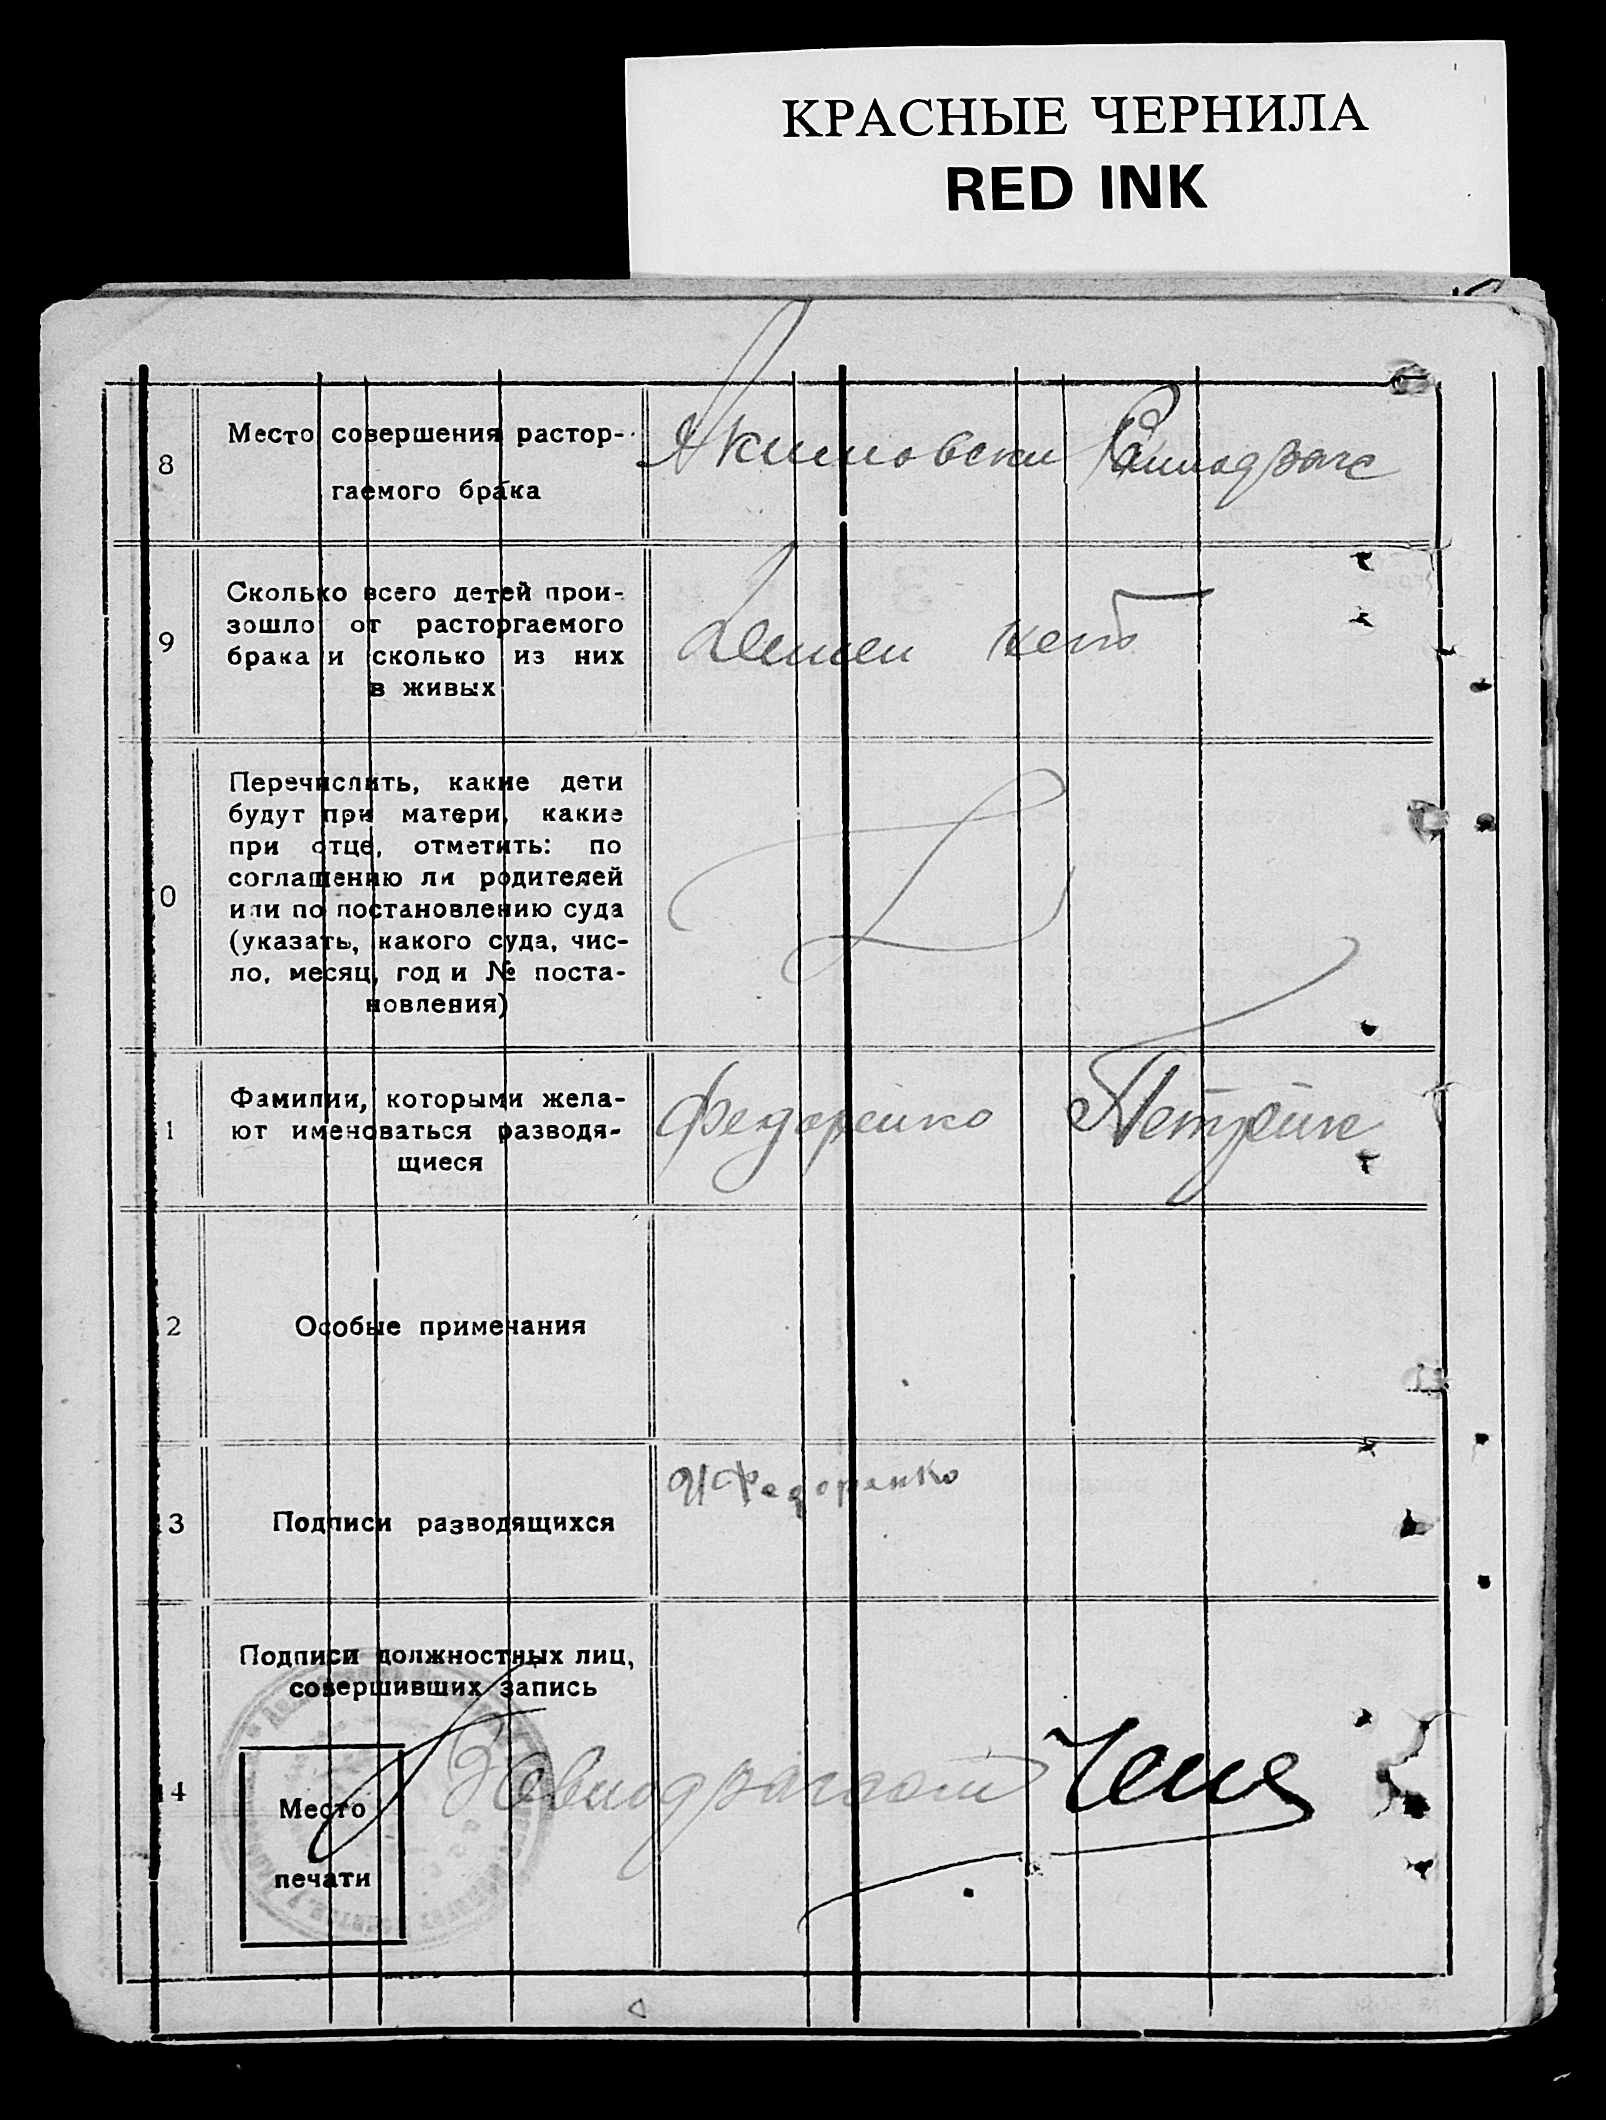 КРАСНЫЕ ЧЕРНИЛА
RED INK
8
Место совершения растор-
гаемого брака
Акимовским
9
Сколько всего детей прои-
зошло от расторгаемого
брака и сколько из них
в живых
Детей нет
0
Перечислить, какие дети
будут при матери, какие
при отце, отметить: по
соглашению ли родителей
или по постановлению суда
(указать, какого суда, чис-
ло, месяц, год и № поста-
новления)
1
Фамилии, которыми жела-
ют именоваться разводя-
щиеся
Федоренко Петренко
2
Особые примечания
3
Подписи разводящихся
Федоренко
14
Подписи должностных лиц,
совершивших запись
Место
печати